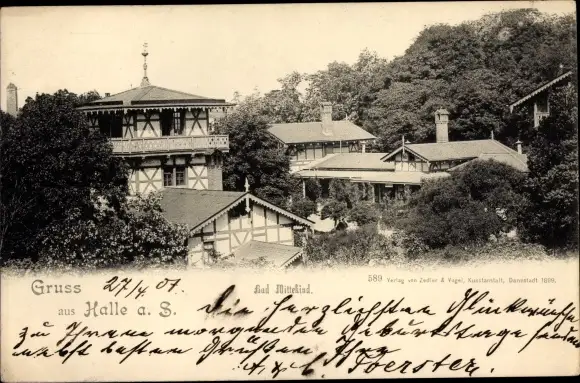 589 Verlag von Zedler & Vogel, Kunstanstalt, Darmstadt 1899.
Gruss
aus Halle a. S.
Bad Wittekind.
27/4 01
Die herzlichsten Glückwünsche
zu Ihrem morgenden Geburtstage senden
nebst besten Grüßen Ihr
Foerster.